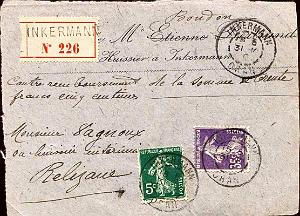 INKERMANN
N° 226
Boudon
Me Etienne
Huissier à Inkermann
INKERMANN
31
ORAN
Contre remboursement de la somme de trente
francs cinq centimes
Monsieur
ou huissier intérimaire
Relizane
5c
35c
ORAN